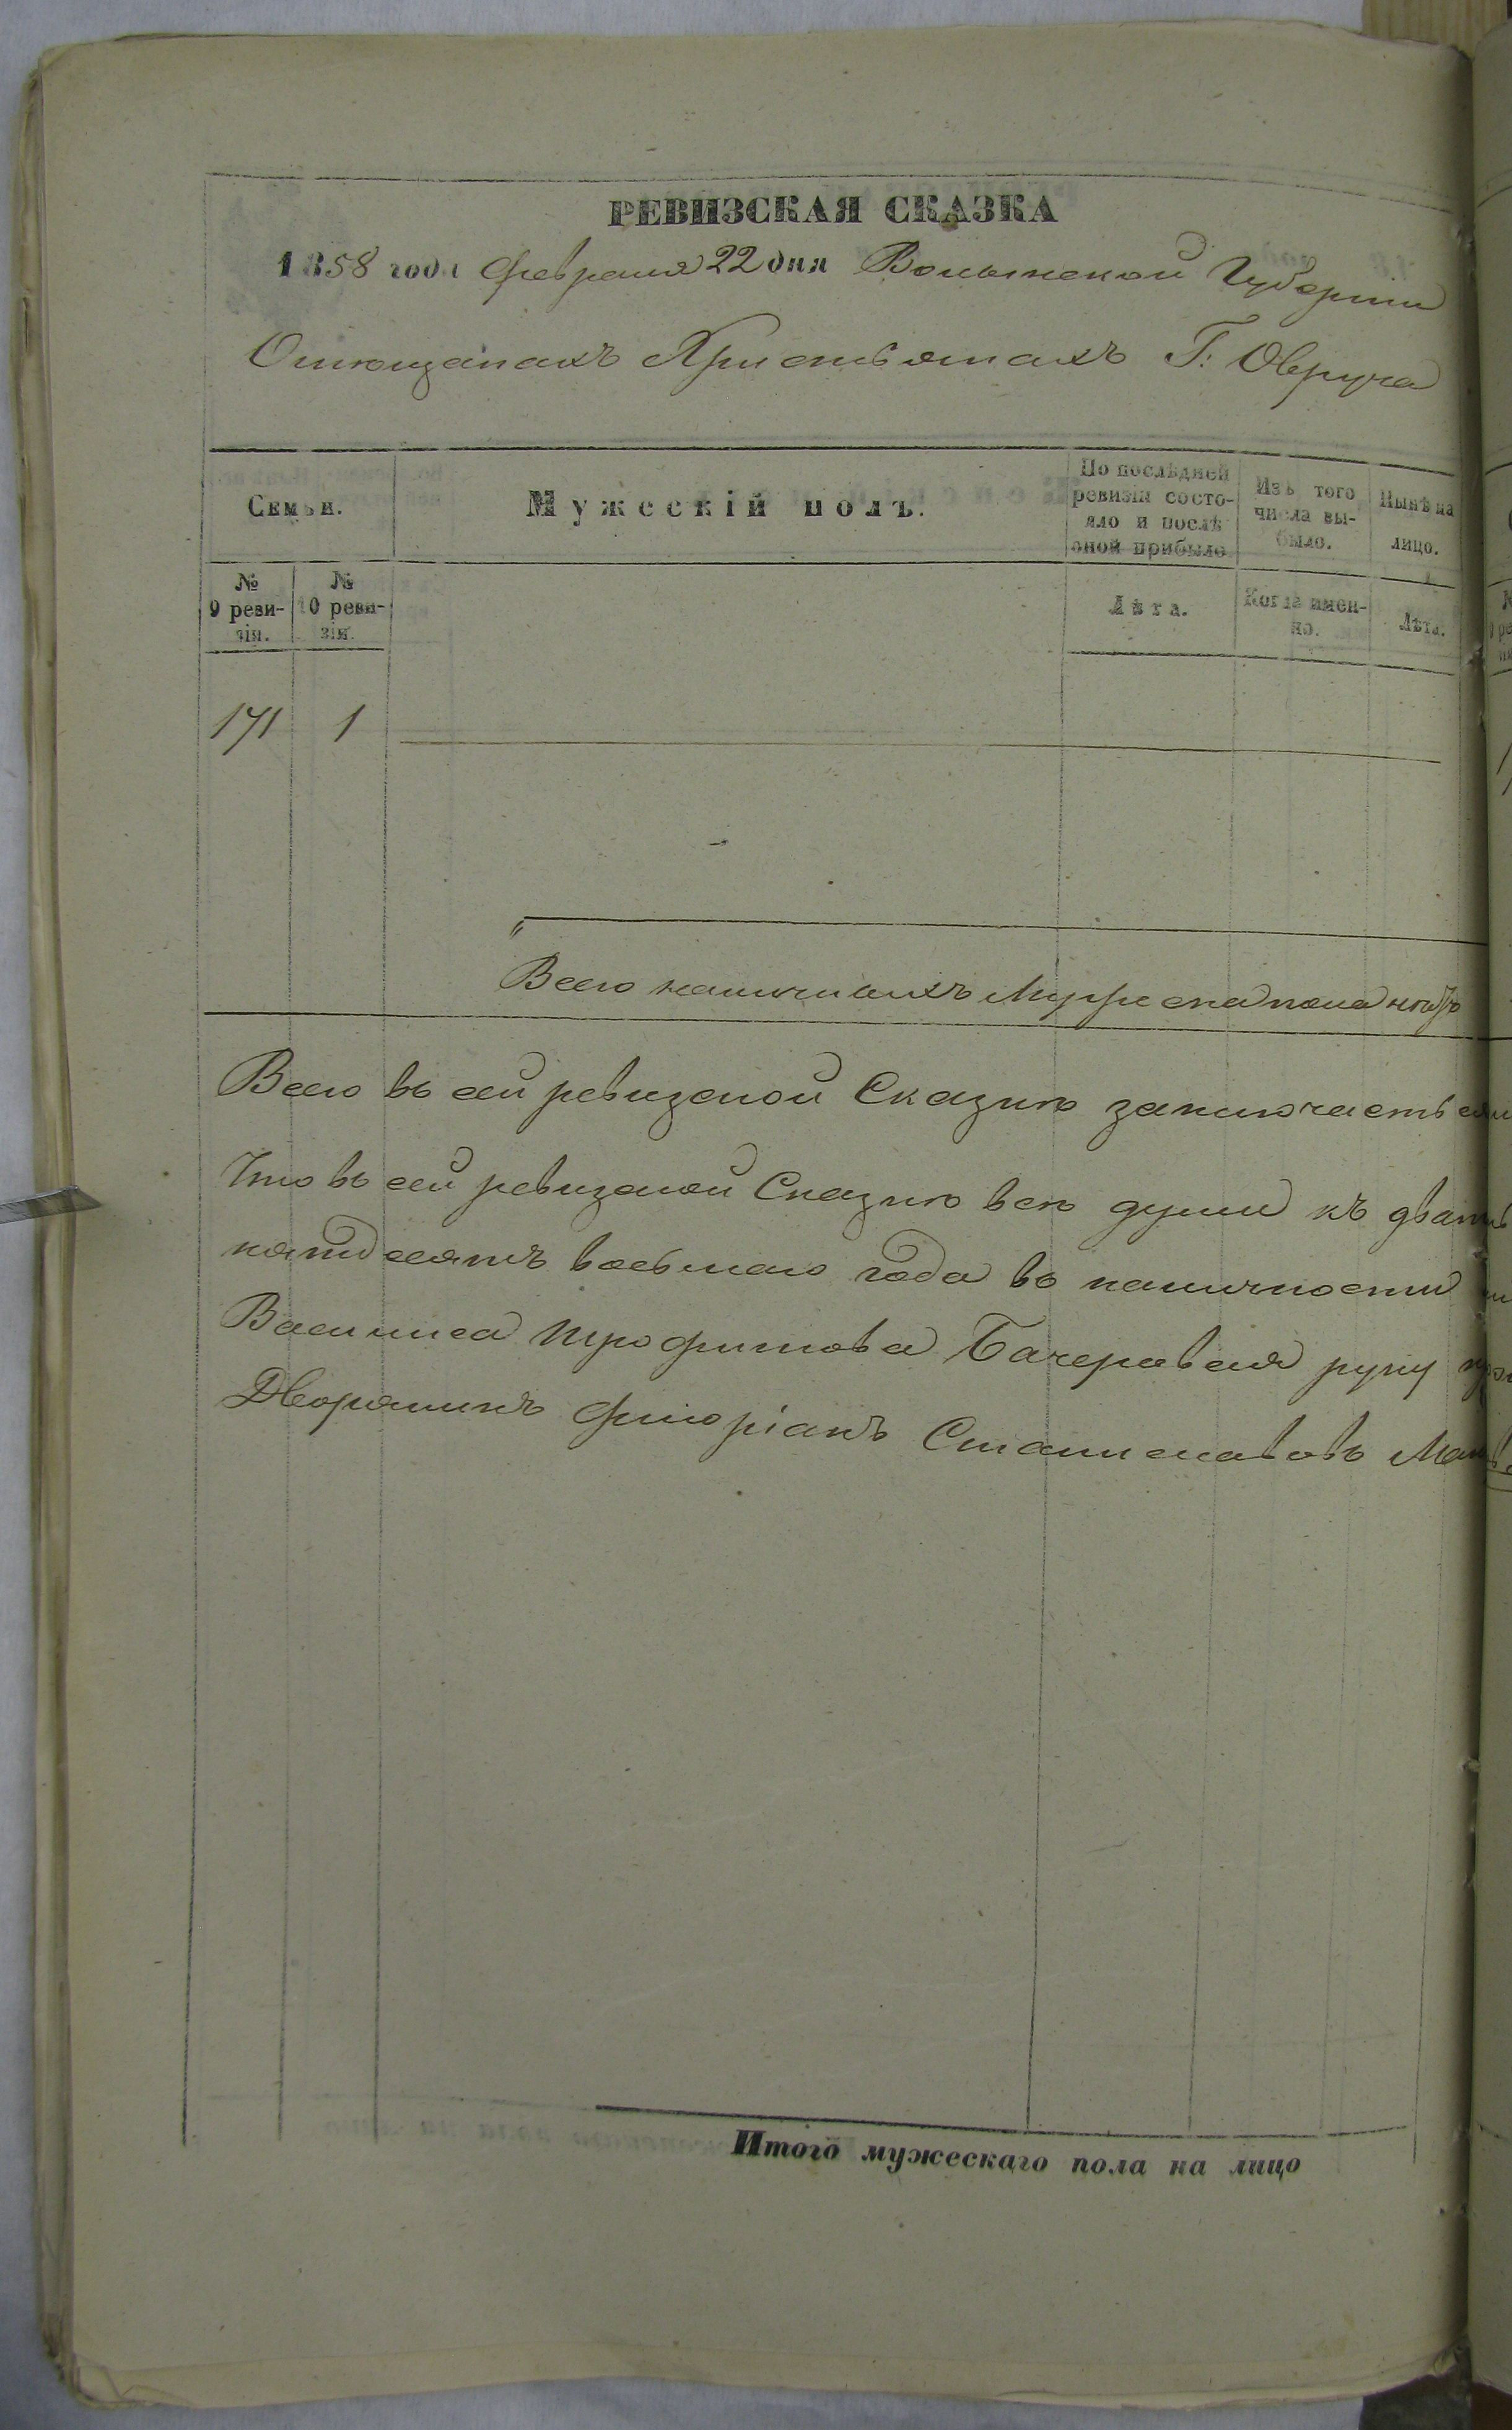 РЕВИЗСКАЯ СКАЗКА
1858 года февраля 22 дня Волынской Губернии
О мещанахъ Христьянахъ Г: Овруча
Семьи.
Мужескій полъ.
По послѣдней ревизіи состояло и послѣ оной прибыло
Изъ того числа выбыло.
Нынѣ на лицо.
№ 9 ревизіи.
№ 10 ревизіи.
Лѣта.
Когда именно.
Лѣта.
171 1
Всего наличныхъ Мужеска пола нѣтъ
Всего въ сей ревизской Сказкѣ заключаетъ
Что въ сей ревизской Сказкѣ всѣ души къ
пятдесятъ восьмаго года въ наличности
Василиса Трофимова руку
Дворянинъ Флоріанъ Станиславовъ
Итого мужескаго пола на лицо